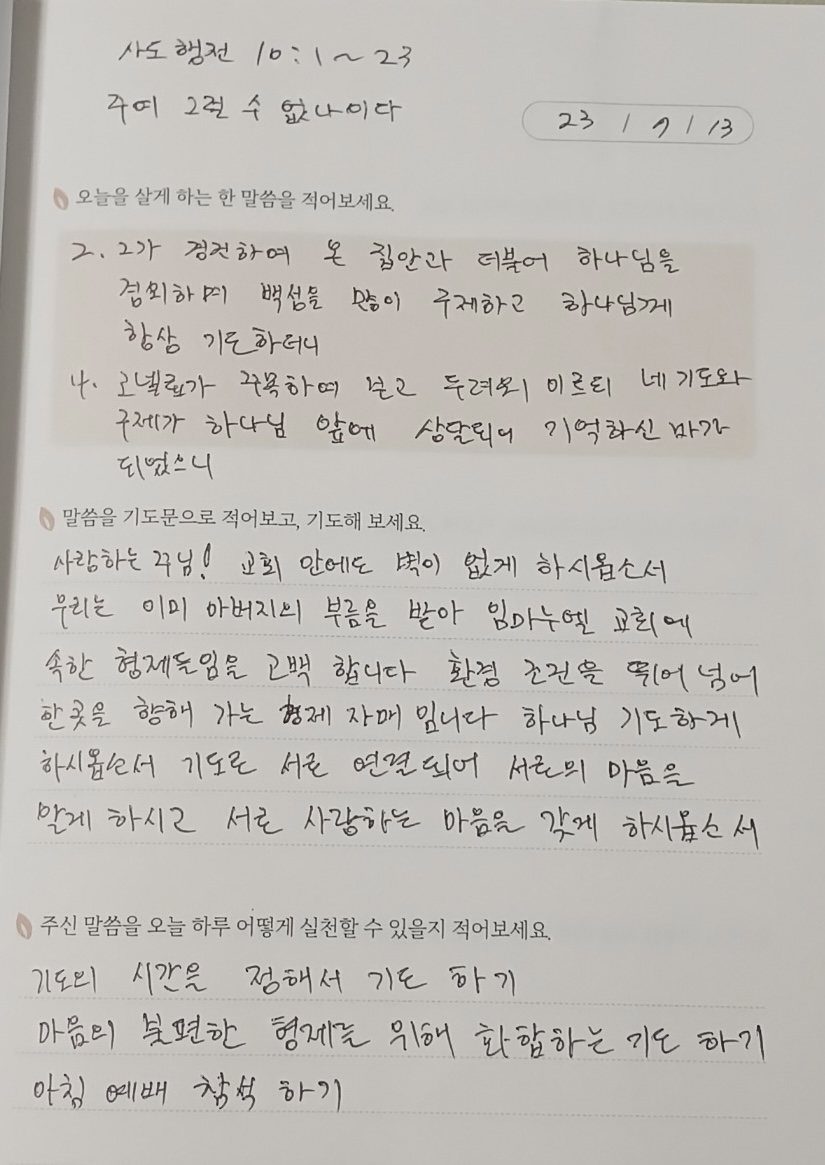 사도행전 10:1~23
주여 그럴 수 없나이다
23 / 7 / 13
오늘을 살게 하는 한 말씀을 적어보세요.
2. 그가 경건하여 온 집안과 더불어 하나님을
경외하며 백성을 많이 구제하고 하나님께
항상 기도하더니
4. 고넬료가 주목하여 보고 두려워 이르되 네 기도와
구제가 하나님 앞에 상달되어 기억하신 바가
되었으니
말씀을 기도문으로 적어보고, 기도해 보세요.
사랑하는 주님! 교회 안에도 벽이 없게 하시옵소서
우리는 이미 아버지의 부름을 받아 임마누엘 교회에
속한 형제들임을 고백 합니다 환경 조건을 뛰어 넘어
한곳을 향해 가는 형제 자매 입니다 하나님 기도하게
하시옵소서 기도로 서로 연결되어 서로의 마음을
알게 하시고 서로 사랑하는 마음을 갖게 하시옵소서
주신 말씀을 오늘 하루 어떻게 실천할 수 있을지 적어보세요.
기도의 시간을 정해서 기도 하기
마음의 불편한 형제를 위해 화합하는 기도 하기
아침 예배 참석 하기